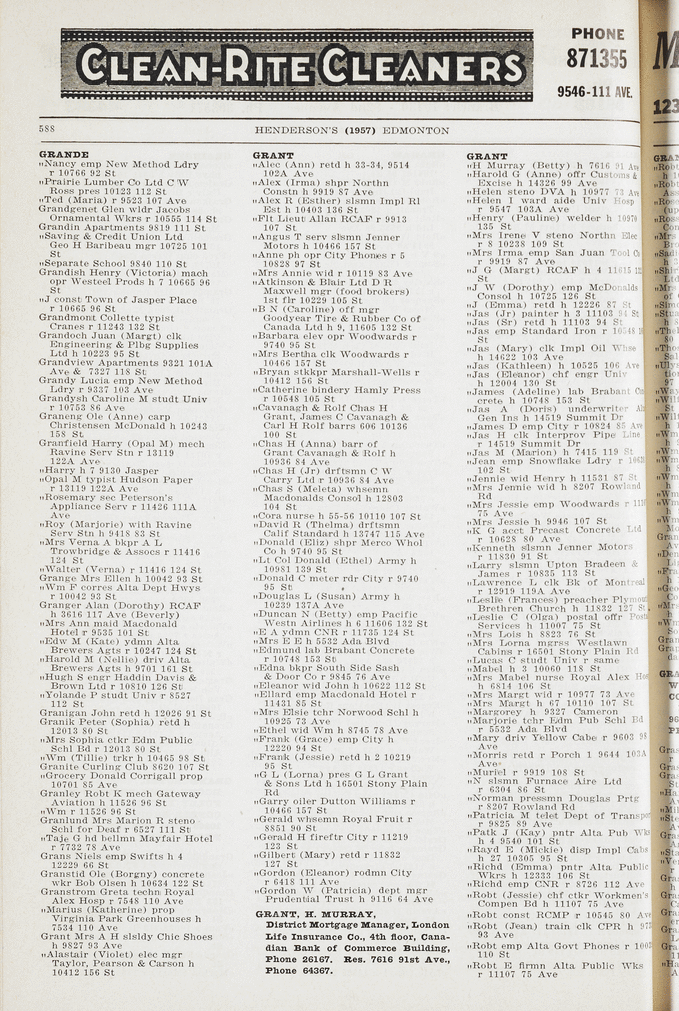 CLEAN-RITE CLEANERS
PHONE
871355
9546-111 AVE.
588
HENDERSON'S (1957) EDMONTON
GRANDE
„Nancy emp New Method Ldry
r 10766 92 St
„Prairie Lumber Co Ltd C W
Ross pres 10123 112 St
„Ted (Maria) r 9523 107 Ave
Grandgenet Glen wldr Jacobs
Ornamental Wkrs r 10555 114 St
Grandin Apartments 9819 111 St
„Saving & Credit Union Ltd
Geo H Baribeau mgr 10725 101
St
„Separate School 9840 110 St
Grandish Henry (Victoria) mach
opr Westeel Prods h 7 10665 96
St
„J const Town of Jasper Place
r 10665 96 St
Grandmont Collette typist
Cranes r 11243 132 St
Grandoch Juan (Margt) clk
Engineering & Plbg Supplies
Ltd h 10223 95 St
Grandview Apartments 9321 101A
Ave & 7327 118 St
Grandy Lucia emp New Method
Ldry r 9337 103 Ave
Grandysh Caroline M studt Univ
r 10753 86 Ave
Graneng Ole (Anne) carp
Christensen McDonald h 10243
158 St
Granfield Harry (Opal M) mech
Ravine Serv Stn r 13119
122A Ave
„Harry h 7 9130 Jasper
„Opal M typist Hudson Paper
r 13119 122A Ave
„Rosemary sec Peterson's
Appliance Serv r 11426 111A
Ave
„Roy (Marjorie) with Ravine
Serv Stn h 9418 83 St
„Mrs Verna A bkpr A L
Trowbridge & Assocs r 11416
124 St
„Walter (Verna) r 11416 124 St
Grange Mrs Ellen h 10042 93 St
„Wm F corres Alta Dept Hwys
r 10042 93 St
Granger Alan (Dorothy) RCAF
h 3616 117 Ave (Beverly)
„Mrs Ann maid Macdonald
Hotel r 9535 101 St
„Edw M (Kate) ydmn Alta
Brewers Agts r 10247 124 St
„Harold M (Nellie) driv Alta
Brewers Agts h 9701 161 St
„Hugh S engr Haddin Davis &
Brown Ltd r 10810 126 St
„Yolande P studt Univ r 8527
112 St
Granigan John retd h 12026 91 St
Granik Peter (Sophia) retd h
12013 80 St
„Mrs Sophia ctkr Edm Public
Schl Bd r 12013 80 St
„Wm (Tillie) trkr h 10465 98 St
Granite Curling Club 8620 107 St
„Grocery Donald Corrigall prop
10701 85 Ave
Granley Robt K mech Gateway
Aviation h 11526 96 St
„Wm r 11526 96 St
Granlund Mrs Marion R steno
Schl for Deaf r 6527 111 St
„Taje G hd bellmn Mayfair Hotel
r 7732 78 Ave
Grans Niels emp Swifts h 4
12229 66 St
Granstid Ole (Borgny) concrete
wkr Bob Olsen h 10634 122 St
Granstrom Greta techn Royal
Alex Hosp r 7548 110 Ave
„Marius (Katherine) prop
Virginia Park Greenhouses h
7534 110 Ave
Grant Mrs A H slsldy Chic Shoes
h 9827 93 Ave
„Alastair (Violet) elec mgr
Taylor, Pearson & Carson h
10412 156 St
GRANT
„Alec (Ann) retd h 33-34, 9514
102A Ave
„Alex (Irma) shpr Northn
Constn h 9919 87 Ave
„Alex R (Esther) slsmn Impl Rl
Est h 10403 136 St
„Flt Lieut Allan RCAF r 9913
107 St
„Angus T serv slsmn Jenner
Motors h 10466 157 St
„Anne ph opr City Phones r 5
10828 97 St
„Mrs Annie wid r 10119 83 Ave
„Atkinson & Blair Ltd D R
Maxwell mgr (food brokers)
1st flr 10229 105 St
„B N (Caroline) off mgr
Goodyear Tire & Rubber Co of
Canada Ltd h 9, 11605 132 St
„Barbara elev opr Woodwards r
9740 95 St
„Mrs Bertha clk Woodwards r
10466 157 St
„Bryan stkkpr Marshall-Wells r
10412 156 St
„Catherine bindery Hamly Press
r 10548 105 St
„Cavanagh & Rolf Chas H
Grant, James C Cavanagh &
Carl H Rolf barrs 606 10136
100 St
„Chas H (Anna) barr of
Grant Cavanagh & Rolf h
10936 84 Ave
„Chas H (Jr) drftsmn C W
Carry Ltd r 10936 84 Ave
„Chas S (Meleta) whsemn
Macdonalds Consol h 12803
104 St
„Cora nurse h 55-56 10110 107 St
„David R (Thelma) drftsmn
Calif Standard h 13747 115 Ave
„Donald (Eliz) shpr Merco Whol
Co h 9740 95 St
„Lt Col Donald (Ethel) Army h
10981 139 St
„Donald C meter rdr City r 9740
95 St
„Douglas L (Susan) Army h
10239 137A Ave
„Duncan N (Betty) emp Pacific
Westn Airlines h 6 11606 132 St
„E A ydmn CNR r 11735 124 St
„Mrs E E h 5532 Ada Blvd
„Edmund lab Brabant Concrete
r 10748 153 St
„Edna bkpr South Side Sash
& Door Co r 9845 76 Ave
„Eleanor wid John h 10622 112 St
„Ellard emp Macdonald Hotel r
11431 85 St
„Mrs Elsie tchr Norwood Schl h
10925 73 Ave
„Ethel wid Wm h 8745 78 Ave
„Frank (Grace) emp City h
12220 94 St
„Frank (Jessie) retd h 2 10219
95 St
„G L (Lorna) pres G L Grant
& Sons Ltd h 16501 Stony Plain
Rd
„Garry oiler Dutton Williams r
10466 157 St
„Gerald whsemn Royal Fruit r
8851 90 St
„Gerald H fireftr City r 11219
123 St
„Gilbert (Mary) retd r 11832
127 St
„Gordon (Eleanor) rodmn City
r 6418 111 Ave
„Gordon W (Patricia) dept mgr
Prudential Trust h 9116 64 Ave
GRANT, H. MURRAY,
District Mortgage Manager, London
Life Insurance Co., 4th floor, Cana-
dian Bank of Commerce Building,
Phone 26167. Res. 7616 91st Ave.,
Phone 64367.
GRANT
„H Murray (Betty) h 7616 91 Ave
„Harold G (Anne) offr Customs &
Excise h 14326 99 Ave
„Helen steno DVA h 10977 73 Ave
„Helen I ward aide Univ Hosp
r 9547 103A Ave
„Henry (Pauline) welder h 10970
135 St
„Mrs Irene V steno Northn Elec
r 8 10238 109 St
„Mrs Irma emp San Juan Tool Co
r 9919 87 Ave
„J G (Margt) RCAF h 4 11015 132
St
„J W (Dorothy) emp McDonalds
Consol h 10725 126 St
„J (Emma) retd h 12226 87 St
„Jas (Jr) painter h 3 11103 94 St
„Jas (Sr) retd h 11103 94 St
„Jas emp Standard Iron r 10548
St
„Jas (Mary) clk Impl Oil Whse
h 14622 103 Ave
„Jas (Kathleen) h 10525 106 Ave
„Jas (Eleanor) chf engr Univ
h 12004 130 St
„James (Adeline) lab Brabant Con
crete h 10748 153 St
„Jas A (Doris) underwriter
Gen Ins h 14519 Summit Dr
„James D emp City r 10824 85 Ave
„Jas H clk Interprov Pipe Line
r 14519 Summit Dr
„Jas M (Marion) h 7415 119 St
„Jean emp Snowflake Ldry r
102 St
„Jennie wid Henry h 11531 87 St
„Mrs Jennie wid h 8207 Rowland
Rd
„Mrs Jessie emp Woodwards r
75 Ave
„Mrs Jessie h 9946 107 St
„K G acct Precast Concrete Ltd
r 10628 80 Ave
„Kenneth slsmn Jenner Motors
r 11830 91 St
„Larry slsmn Upton Bradeen &
James r 10835 113 St
„Lawrence L clk Bk of Montreal
r 12919 119A Ave
„Leslie (Frances) preacher Plymouth
Brethren Church h 11832 127 St
„Leslie C (Olga) postal offr Post
Services h 11007 75 St
„Mrs Lois h 8823 76 St
„Mrs Lorna mgrss Westlawn
Cabins r 16501 Stony Plain Rd
„Lucas C studt Univ r same
„Mabel h 3 10060 118 St
„Mrs Mabel nurse Royal Alex Hosp
h 6814 106 St
„Mrs Margt wid r 10977 73 Ave
„Mrs Margt h 67 10110 107 St
„Margorey h 9327 Cameron
„Marjorie tchr Edm Pub Schl Bd
r 5532 Ada Blvd
„Mary driv Yellow Cabe r 9603 98
Ave
„Morris retd r Porch 1 9644 103A
Ave
„Muriel r 9919 108 St
„N slsmn Furnace Aire Ltd
r 6304 86 St
„Norman pressmn Douglas Prtg
r 8207 Rowland Rd
„Patricia M telet Dept of Transport
r 9825 89 Ave
„Patk J (Kay) pntr Alta Pub Wks
h 4 9540 101 St
„Rayd E (Mickie) disp Impl Cabs
h 27 10305 95 St
„Richd (Emma) pntr Alta Public
Wkrs h 12333 106 St
„Richd emp CNR r 8726 112 Ave
„Robt (Jessie) chf ctkr Workmen's
Compen Bd h 11107 75 Ave
„Robt const RCMP r 10545 80 Ave
„Robt (Jean) train clk CPR h
93 Ave
„Robt emp Alta Govt Phones r
110 St
„Robt E firmn Alta Public Wks
r 11107 75 Ave